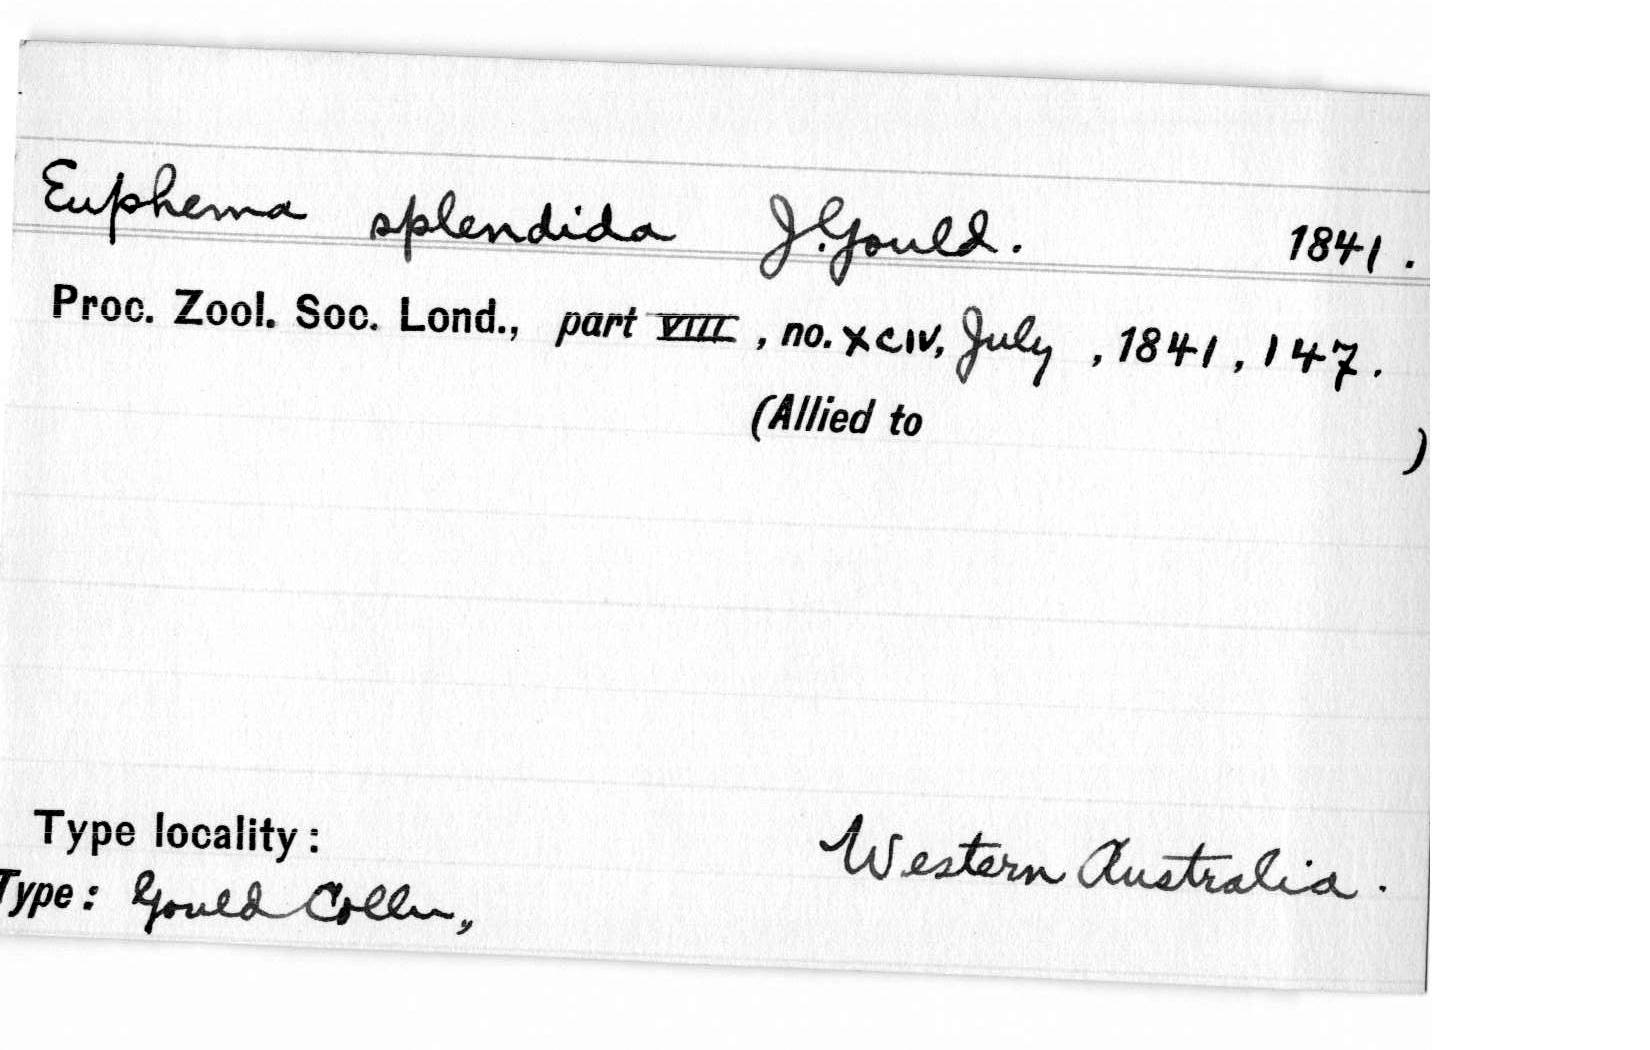 Euphema splendida J. Gould. 1841.
Proc. Zool. Soc. Lond., part VIII, no. xciv, July, 1841, 147.
(Allied to )
Type locality: Western Australia.
Type: Gould Colln,,